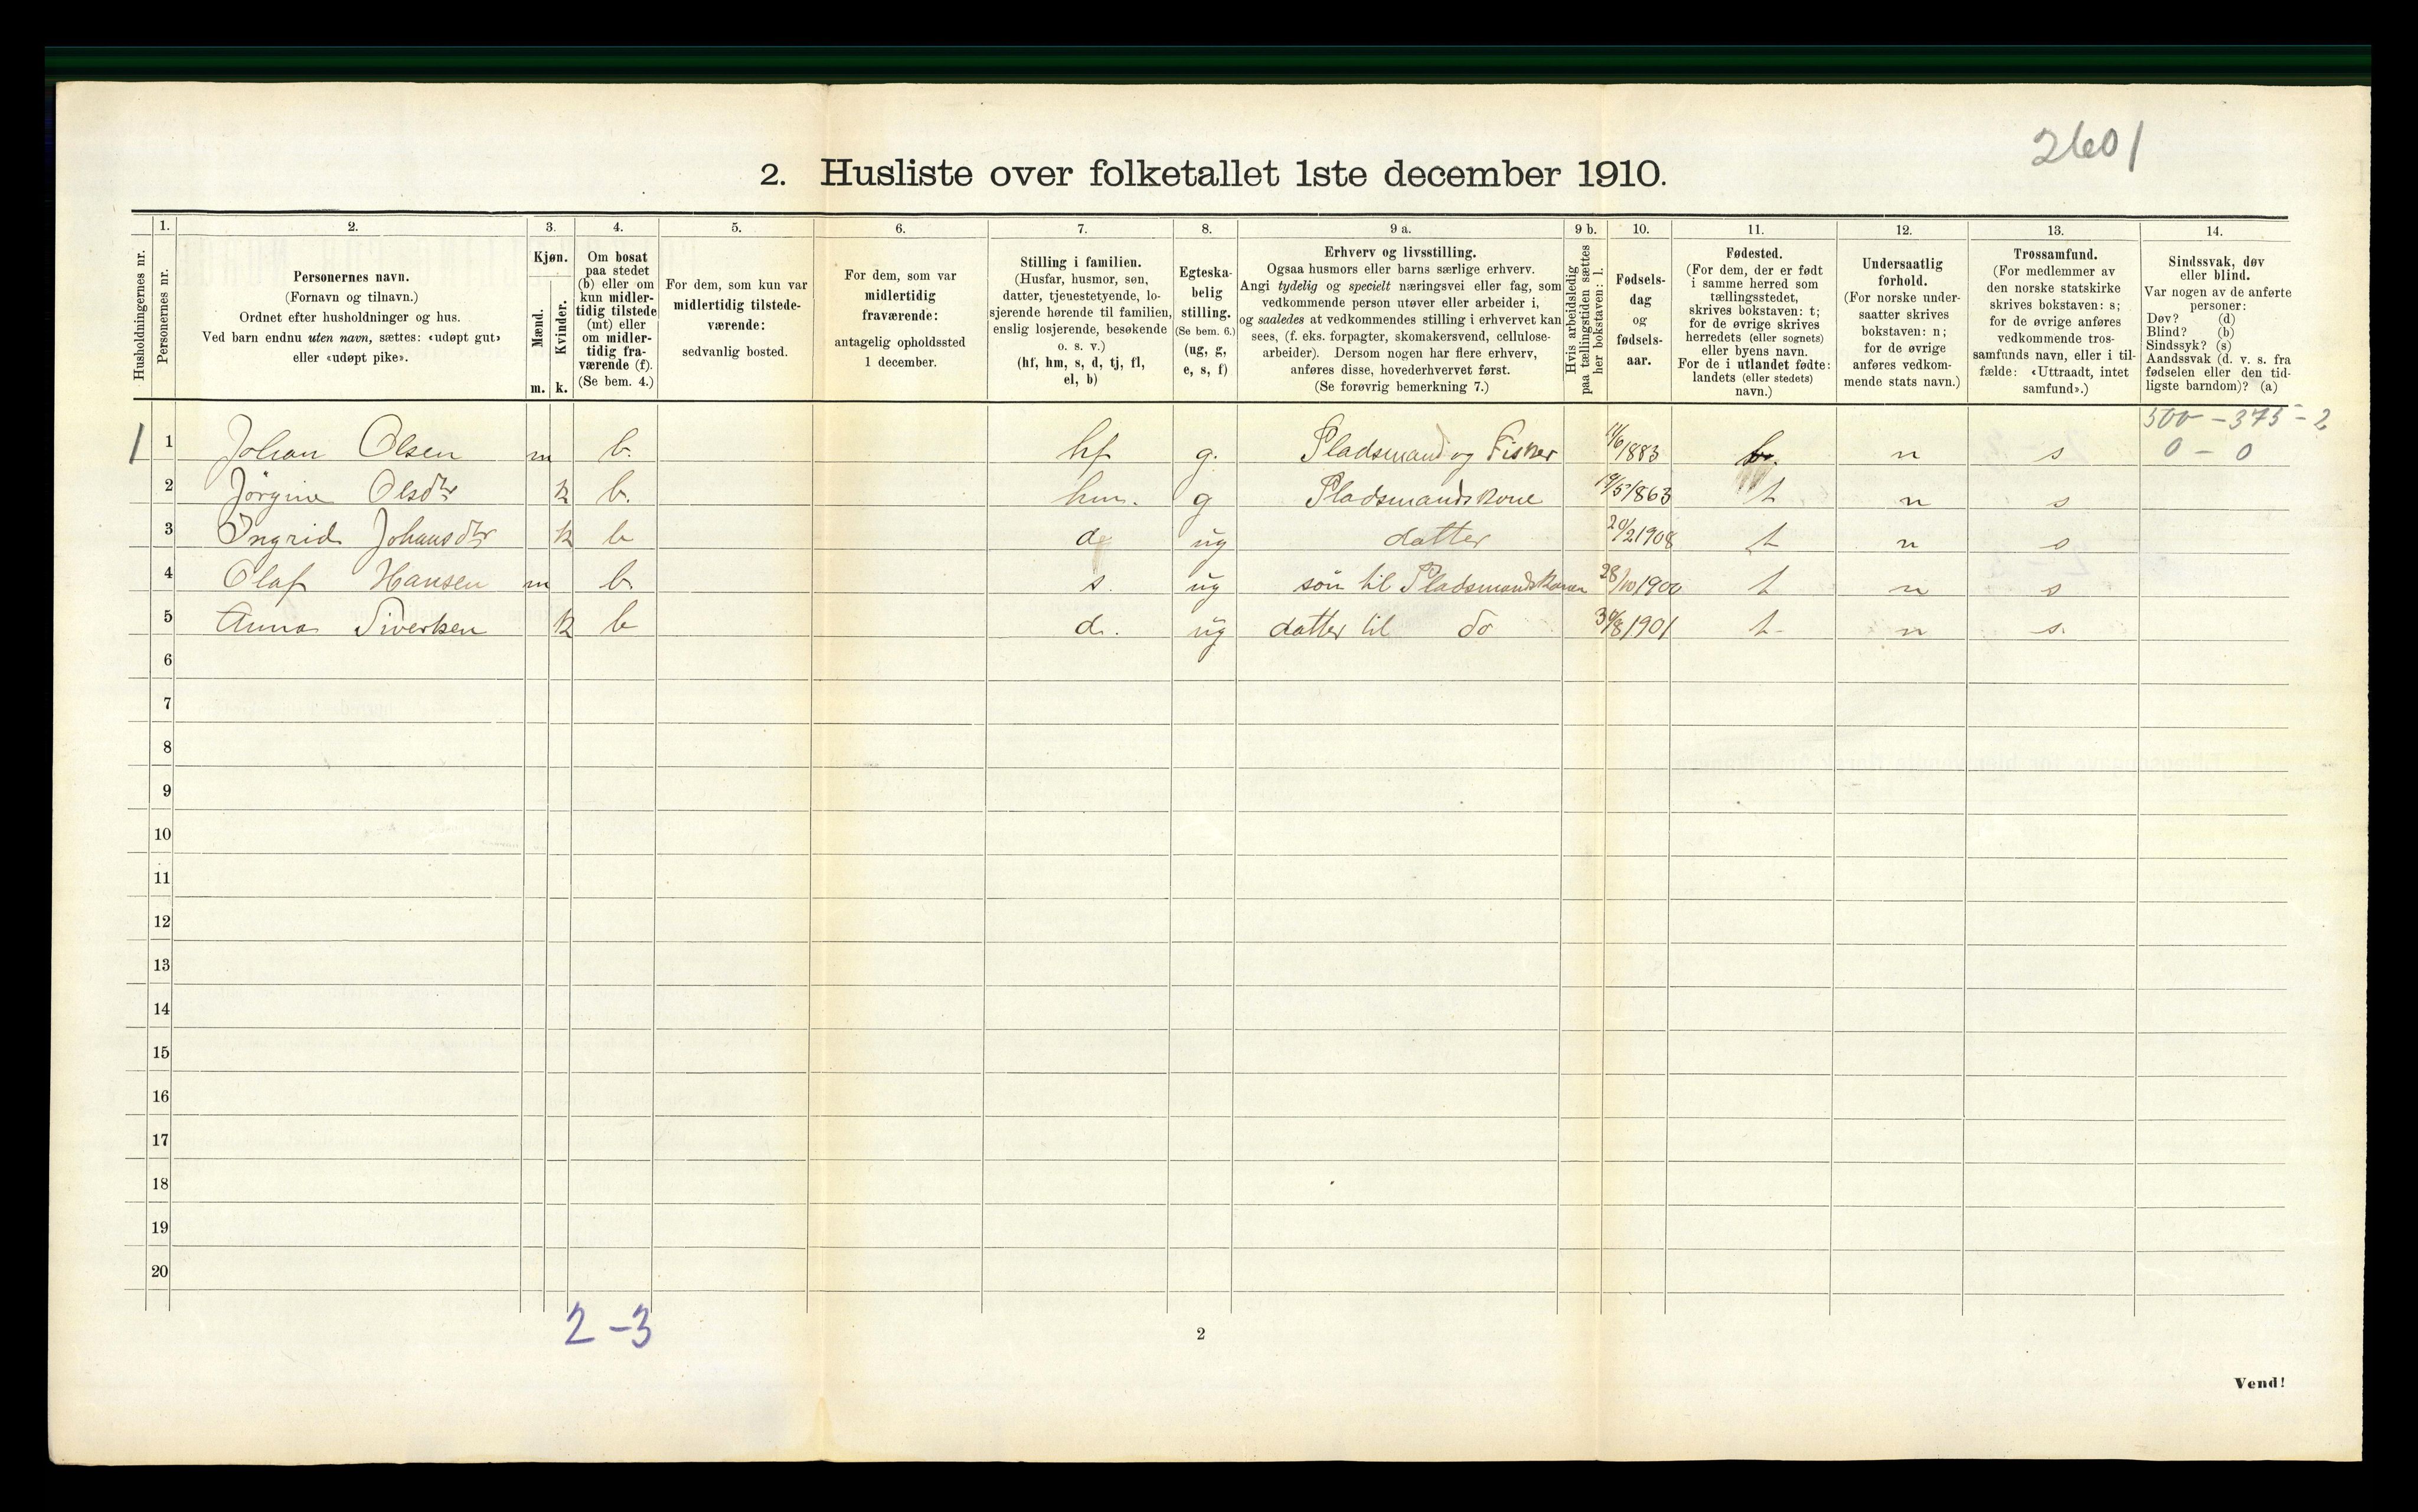 2601
2. Husliste over folketallet 1ste december 1910.
Husholdningernes nr.
1.
Personernes nr.
2.
Personernes navn.
(Fornavn og tilnavn.)
Ordnet efter husholdninger og hus.
Ved barn endnu uten navn, sættes: «udøpt gut»
eller «udøpt pike».
3.
Kjøn.
Mænd.
m.
Kvinder.
k.
4.
Om bosat
paa stedet
(b) eller om
kun midler-
tidig tilstede
(mt) eller
om midler-
tidig fra-
værende (f).
(Se bem. 4.)
5.
For dem, som kun var
midlertidig tilstede-
værende:
sedvanlig bosted.
6.
For dem, som var
midlertidig
fraværende:
antagelig opholdssted
1 december.
7.
Stilling i familien.
(Husfar, husmor, søn,
datter, tjenestetyende, lo-
sjerende hørende til familien,
enslig losjerende, besøkende
o. s. v.)
(hf, hm, s, d, tj, fl,
el, b)
8.
Egteska-
belig
stilling.
(Se bem. 6.)
(ug, g,
e, s, f)
9 a.
Erhverv og livsstilling.
Ogsaa husmors eller barns særlige erhverv.
Angi tydelig og specielt næringsvei eller fag, som
vedkommende person utøver eller arbeider i,
og saaledes at vedkommendes stilling i erhvervet kan
sees, (f. eks. forpagter, skomakersvend, cellulose-
arbeider). Dersom nogen har flere erhverv,
anføres disse, hovederhvervet først.
(Se forøvrig bemerkning 7.)
9 b.
Hvis arbeidsledig
paa tællingstiden sættes
her bokstaven: l.
10.
Fødsels-
dag
og
fødsels-
aar.
11.
Fødested.
(For dem, der er født
i samme herred som
tællingsstedet,
skrives bokstaven: t;
for de øvrige skrives
herredets (eller sognets)
eller byens navn.
For de i utlandet fødte:
landets (eller stedets)
navn.)
12.
Undersaatlig
forhold.
(For norske under-
saatter skrives
bokstaven: n;
for de øvrige
anføres vedkom-
mende stats navn.)
13.
Trossamfund.
(For medlemmer av
den norske statskirke
skrives bokstaven: s;
for de øvrige anføres
vedkommende tros-
samfunds navn, eller i til-
fælde: «Uttraadt, intet
samfund».)
14.
Sindssvak, døv
eller blind.
Var nogen av de anførte
personer:
Døv? (d)
Blind? (b)
Sindssyk? (s)
Aandssvak (d. v. s. fra
fødselen eller den tid-
ligste barndom)? (a)
500 - 375 - 2
0 - 0
1 1 Johan Olsen m b. hf g. Pladsmand og Fisker /6 1883 n s
2 Jörgine Olsdtr k b. hm. g Pladsmandskone /5 1863 t n s
3 Ingrid Johansdtr k b d ug datter 20/2 1908 t n s
4 Olaf Hansen m b. s. ug søn til Pladsmandskonen 28/10 1900 t n s
5 Anna Sivertsen k b d. ug datter til do 30/8 1901 t n s.
6
7
8
9
10
11
12
13
14
15
16
17
18
19
20
2 - 3
2
Vend!